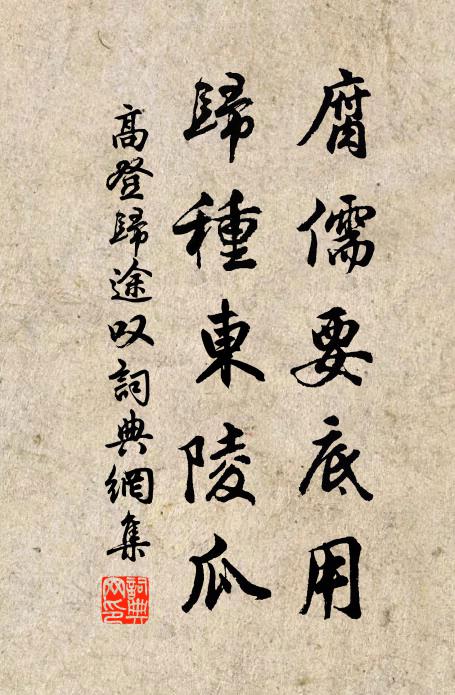 腐儒要底用
歸種東陵瓜
高登歸途叹詞典網集
詞典网印